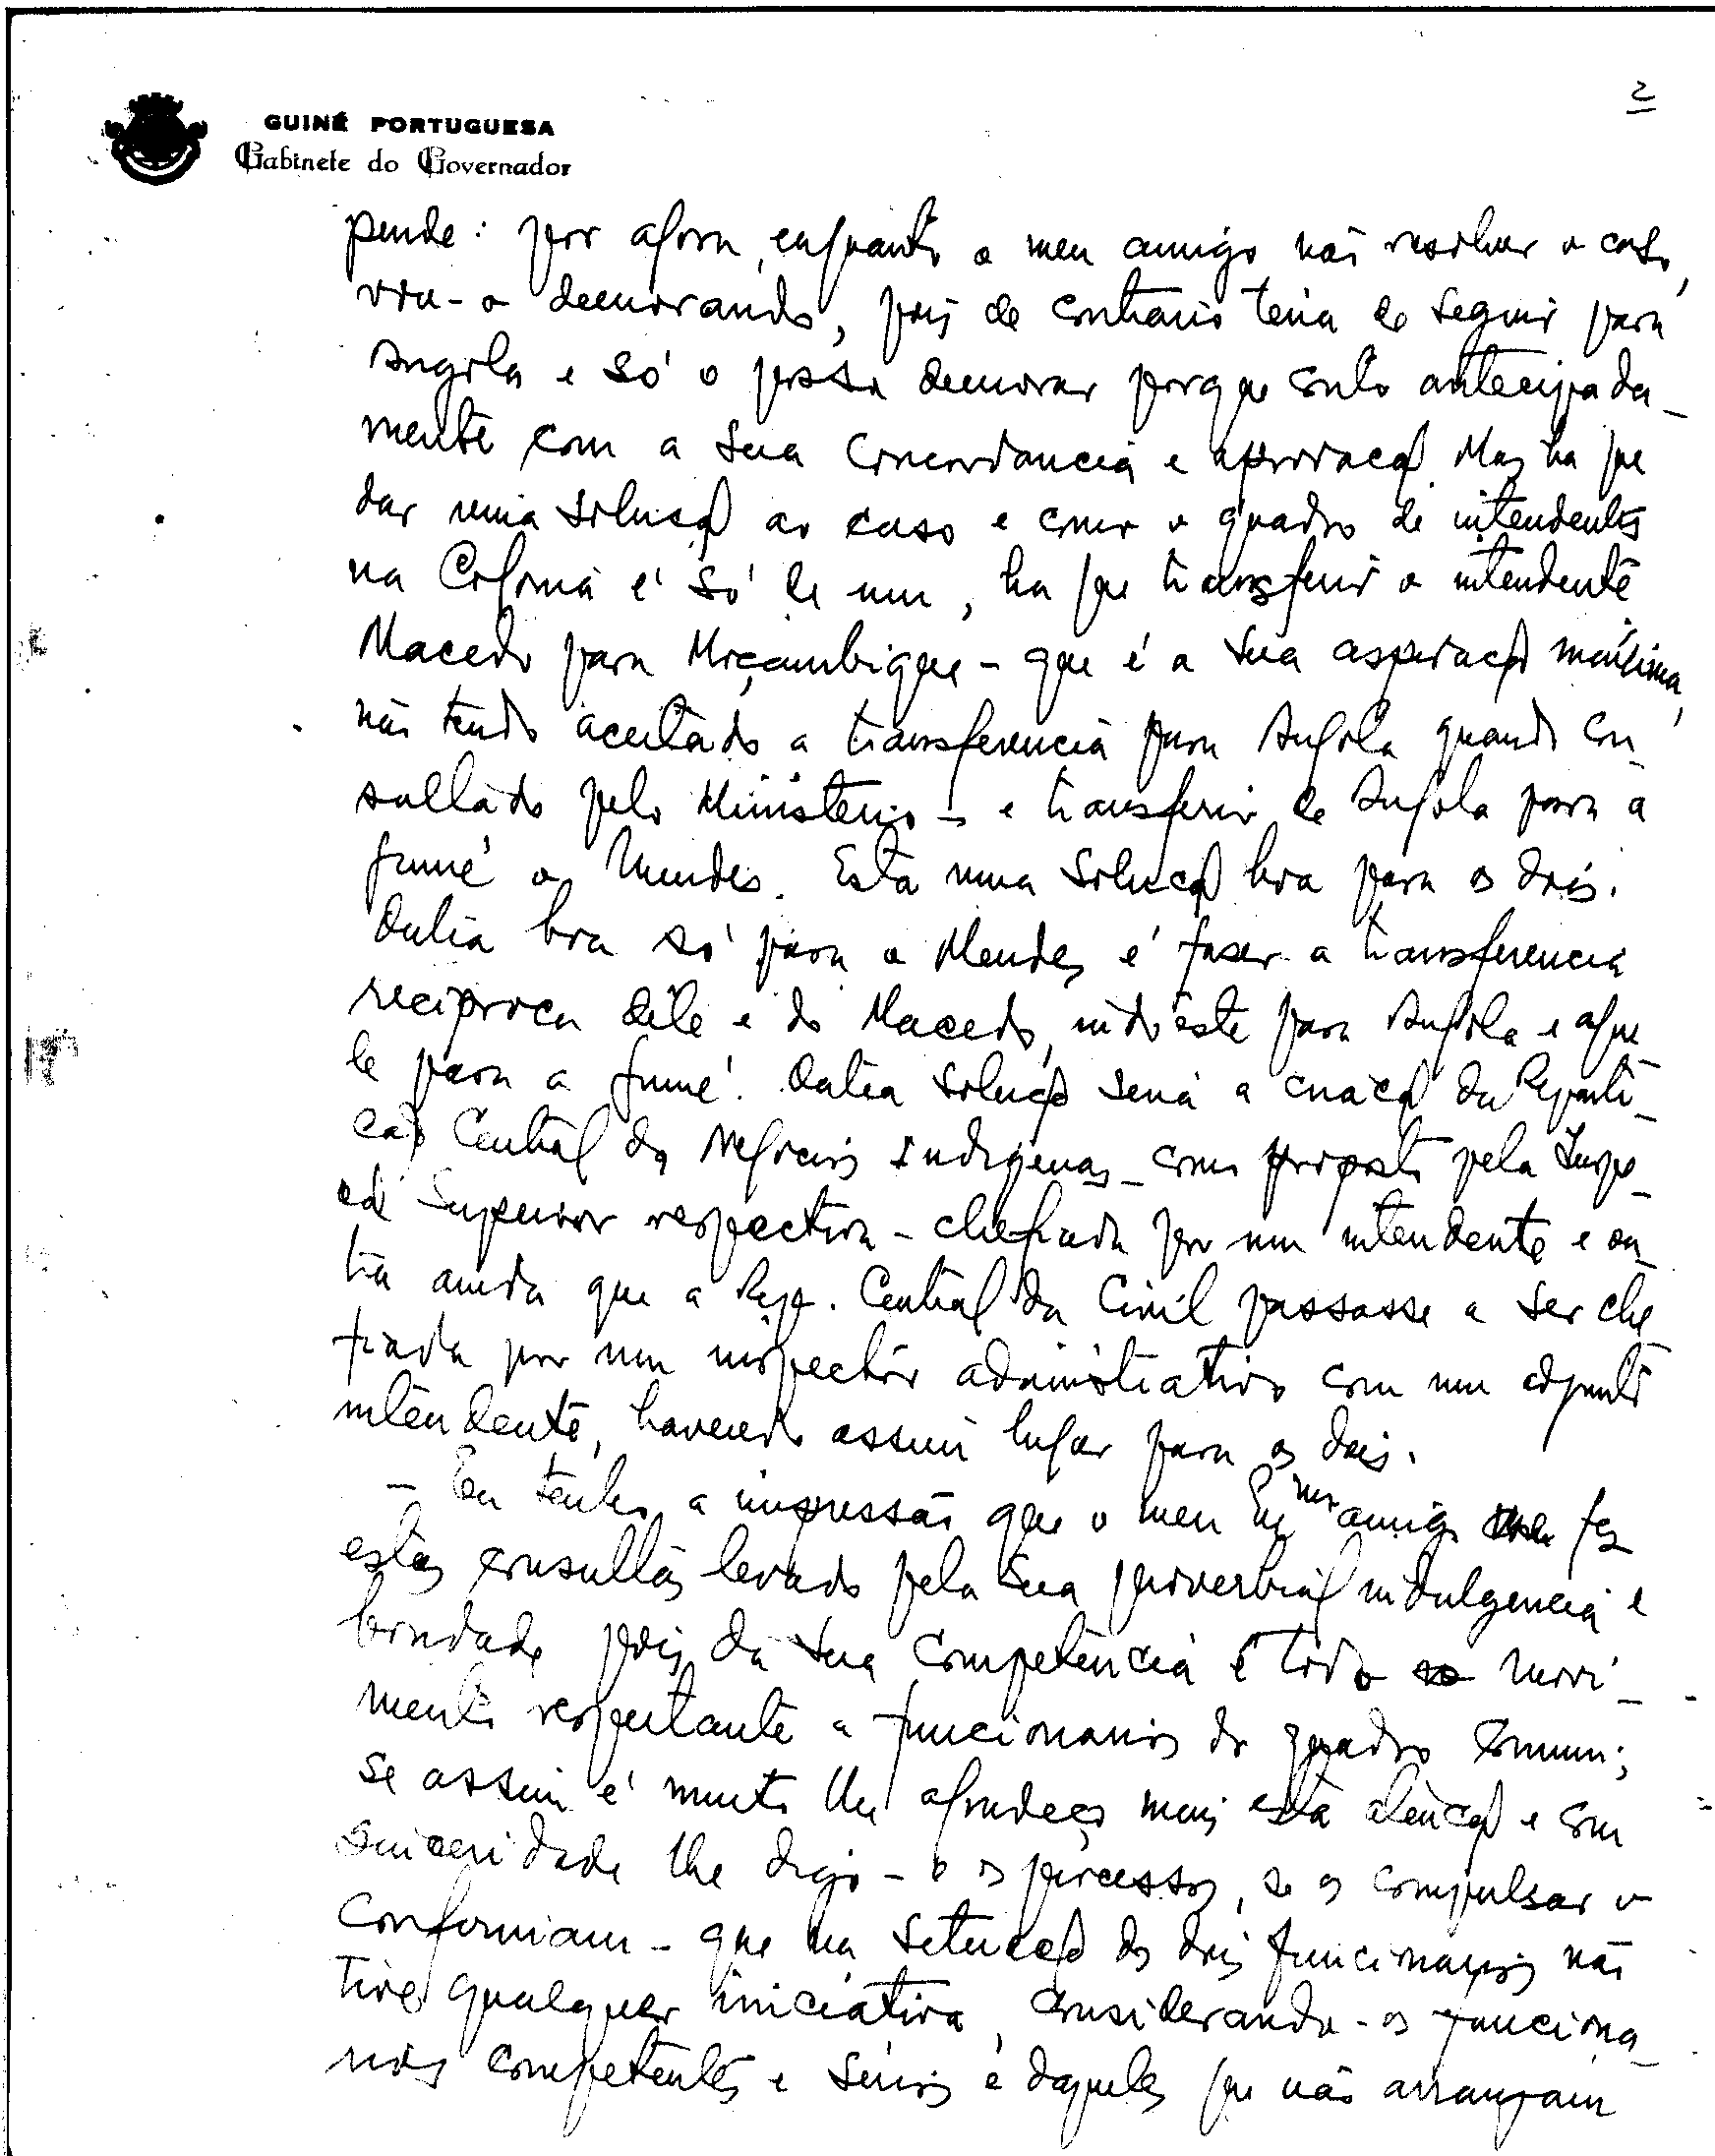 2
GUINÉ PORTUGUESA
Gabinete do Governador
pende: por agora, enquanto o meu amigo não resolver o caso,
vou-o demorando, pois de contrario teria de seguir para
Angola e só o posso demorar porque conto antecipada-
mente com a sua concordancia e aprovação. Mas ha que
dar uma solução ao caso e como o quadro de intendentes
na Colonia é só de um, ha que transferir o intendente
Macedo para Moçambique - que é a sua aspiração maxima,
não tendo aceitado a transferencia para Angola quando con-
sultado pelo Ministerio - e transferir de Angola para a
Guiné o Mendes. Esta uma solução boa para os dois.
Outra boa só para o Mendes é fazer a transferencia
reciproca dêle e do Macedo, indo êste para Angola e aque
le para a Guiné. Outra solução será a criação da Reparti-
ção Central dos Negocios Indigenas - como proposto pela Inspe-
ção Superior respectiva - chefiada por um intendente e ou-
tra ainda que a Rep. Central da Civil passasse a ser che
fiada por um inspector administrativo com um adjunto
intendente, havendo assim lugar para os dois.
- Eu tenho a impressão que o meu Exmo amigo fez
estas consultas levado pela sua proverbial indulgencia e
bondade pois da sua competência é todo movi-
mento respeitante a funcionarios do quadro comum;
se assim é muito lhe agradeço mais esta atenção e com
sinceridade lhe digo - e os processos, se os compulsar o
confirmam - que na situação dos dois funcionarios não
tive qualquer iniciativa, considerando-os funciona-
rios competentes e sérios e daqueles que não arranjam